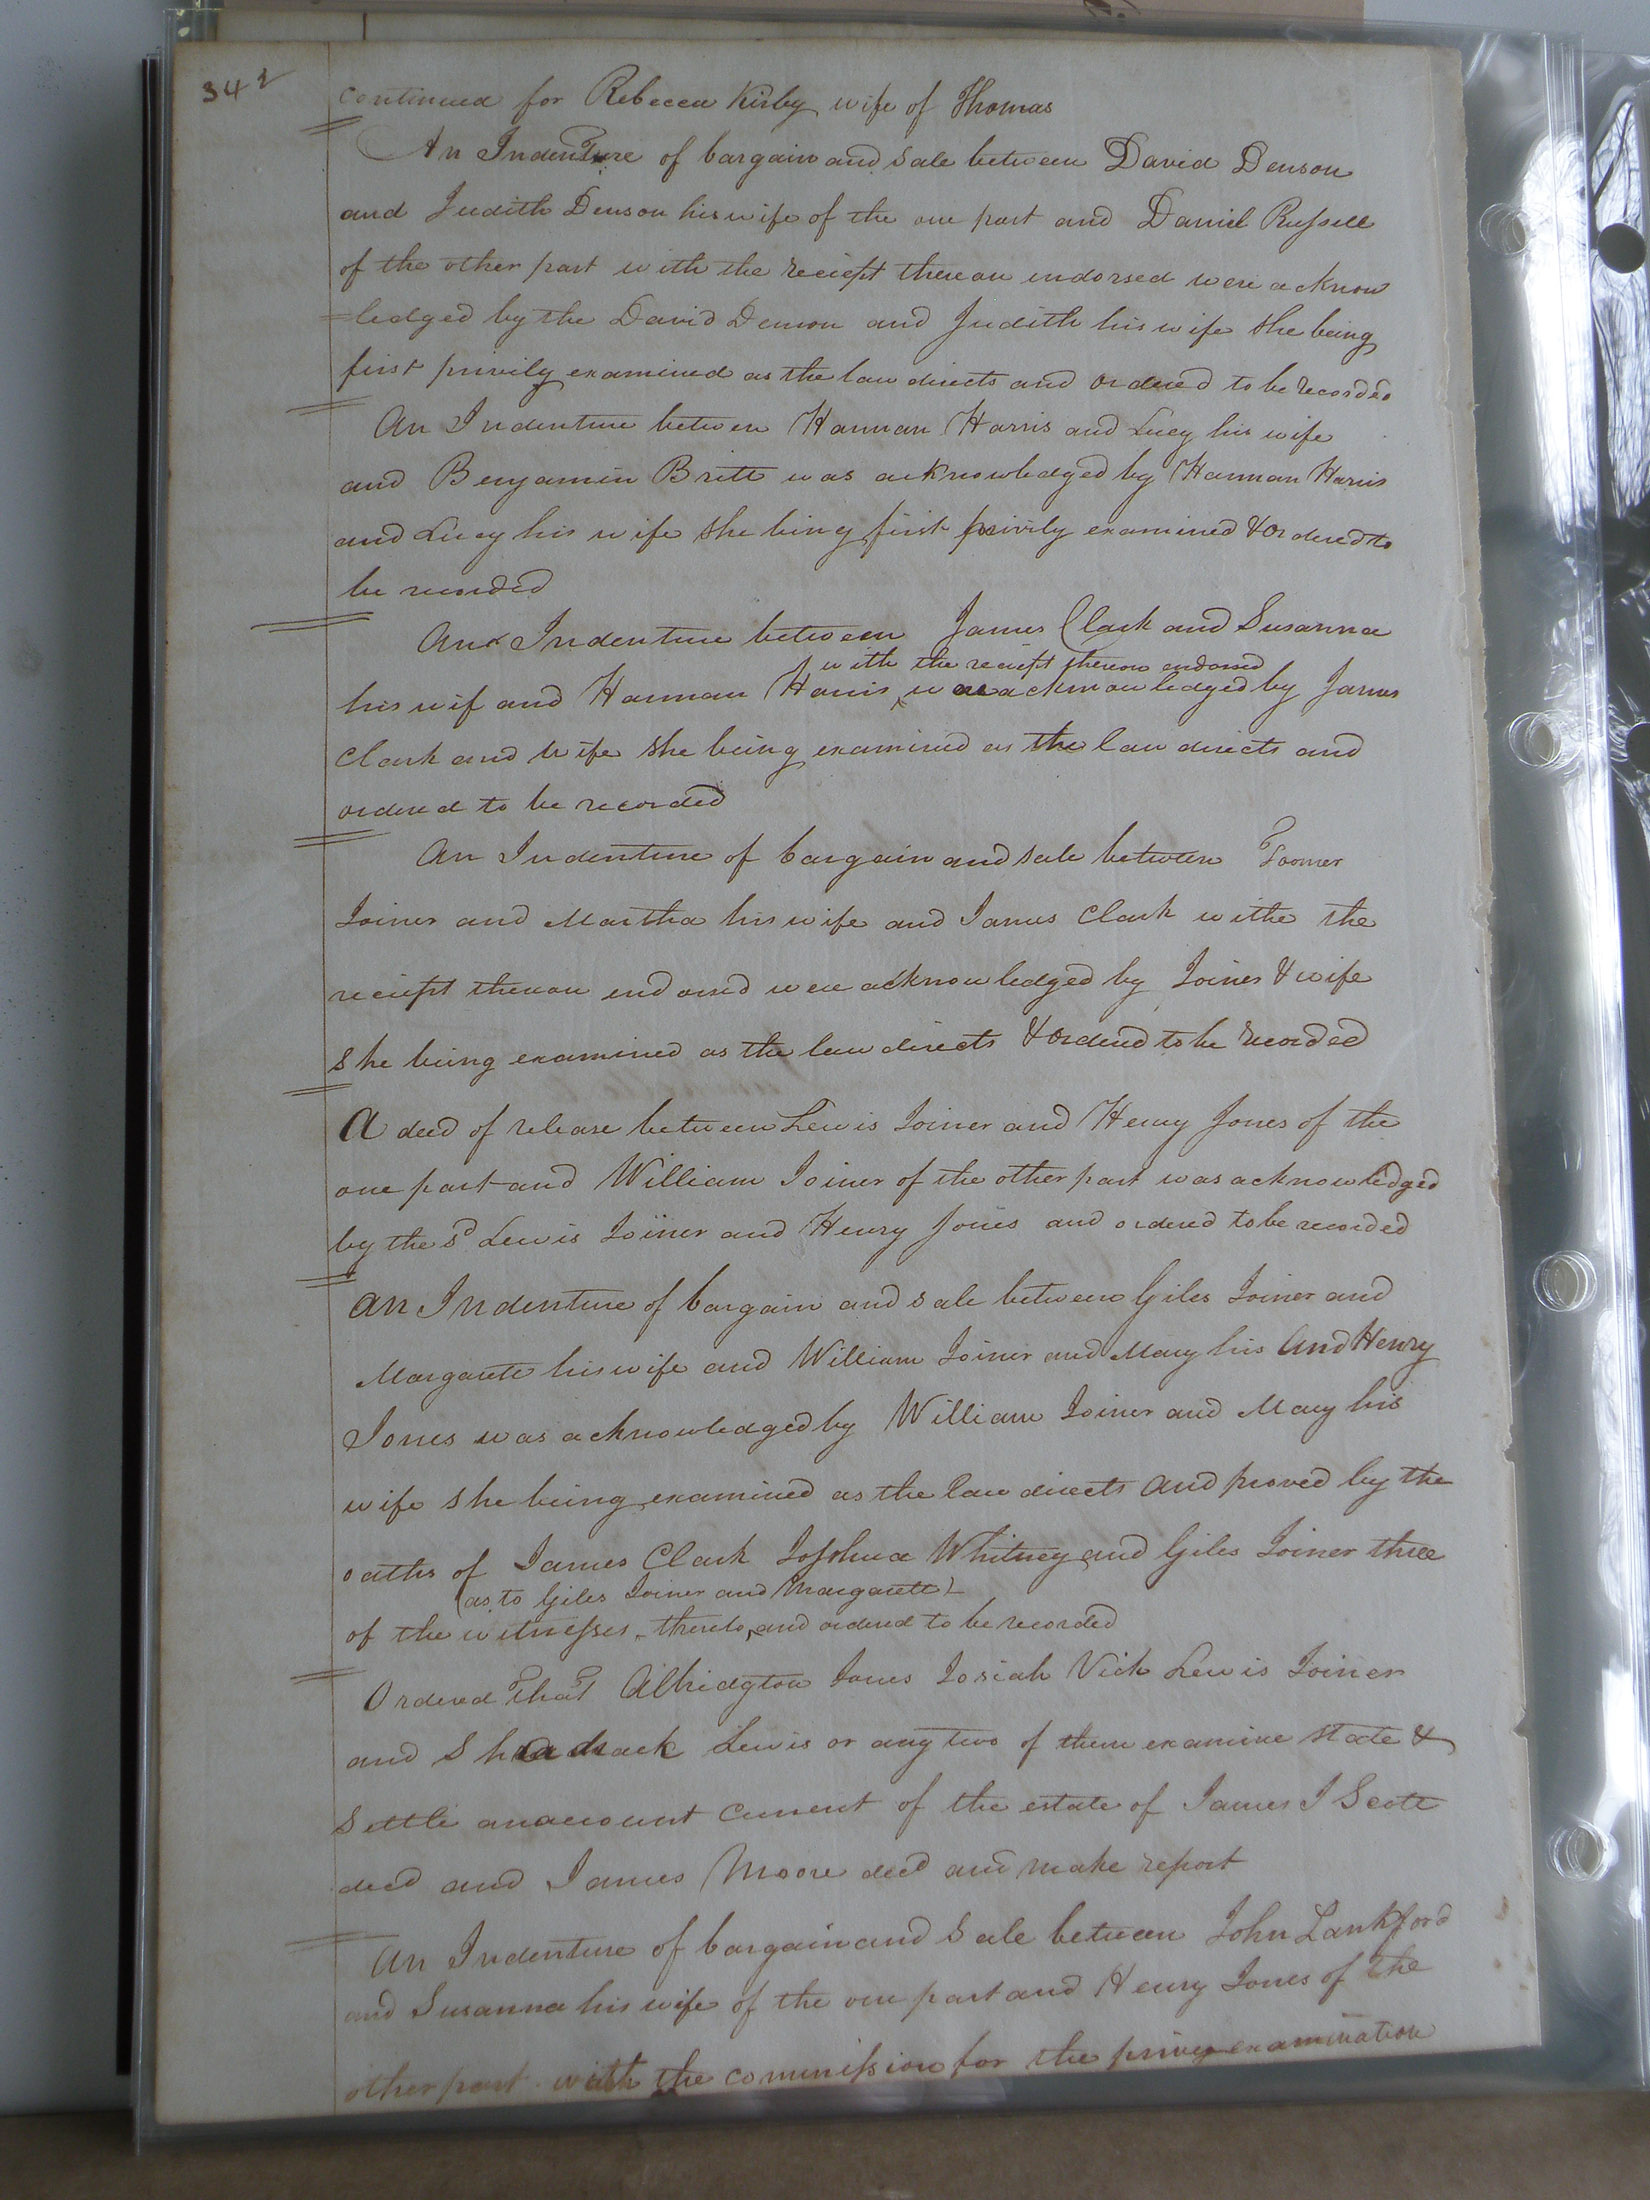 342
continued for Rebecca Kirby wife of Thomas
An Indenture of bargain and sale between David Denson
and Judith Denson his wife of the one part and Daniel Russell
of the other part with the reciept thereon endorsed were acknow
=ledged by the David Denson and Judith his wife she being
first privily examined as the law directs and ordered to be recorded
An Indenture between Hannan Harris and Lucy his wife
and Benjamin Britt was acknowledged by Hannan Harris
and Lucy his wife she being first privily examined & ordered to
be recorded
An Indenture between James Clark and Susanna
with the reciept thereon endorsed
his wif and Hannan Harris was acknowledged by James
Clark and wife she being examined as the law directs and
ordered to be recorded
An Indenture of bargain and sale between Toomer
Joiner and Martha his wife and James Clark withe the
reciept thereon endorsed were acknowledged by Joiner & wife
she being examined as the law directs & ordered to be recorded
A deed of release between Lewis Joiner and Henry Jones of the
one part and William Joiner of the other part was acknowledged
by the sd Lewis Joiner and Henry Jones and ordered to be recorded
An Indenture of bargain and sale between Giles Joiner and
Margarett his wife and William Joiner and Mary his And Henry
Jones was acknowledged by William Joiner and Mary his
wife she being examined as the law directs and proved by the
oaths of James Clark Joshua Whitney and Giles Joiner three
(as to Giles Joiner and Margarett)
of the witnesses thereto, and ordered to be recorded
Ordered that Albridgton Jones Josiah Vick Lewis Joiner
and Shadrack Lewis or any two of them examine state &
settle an account current of the estate of James J Scott
decd and James Moore decd and make report
An Indenture of bargain and sale between John Lankford
and Susanna his wife of the one part and Henry Jones of the
other part with the commission for the privy examination